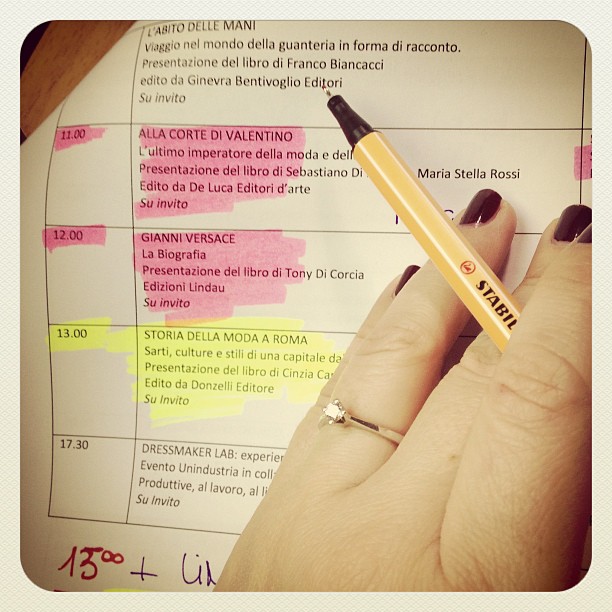 L'ABITO DELLE MANI
Viaggio nel mondo della guanteria in forma di racconto.
Presentazione del libro di Franco Biancacci
edito da Ginevra Bentivoglio Editori
Su invito
11.00
ALLA CORTE DI VALENTINO
L'ultimo imperatore della moda e dell
Presentazione del libro di Sebastiano Di Maria Stella Rossi
Edito da De Luca Editori d'arte
Su invito
12.00
GIANNI VERSACE
La Biografia
Presentazione del libro di Tony Di Corcia
Edizioni Lindau
Su invito
13.00
STORIA DELLA MODA A ROMA
Sarti, culture e stili di una capitale da
Presentazione del libro di Cinzia Ca
Edito da Donzelli Editore
Su Invito
17.30
DRESSMAKER LAB: experie
Evento Unindustria in coll
Produttive, al lavoro, al li
Su Invito
STABIL
15⁰⁰ +